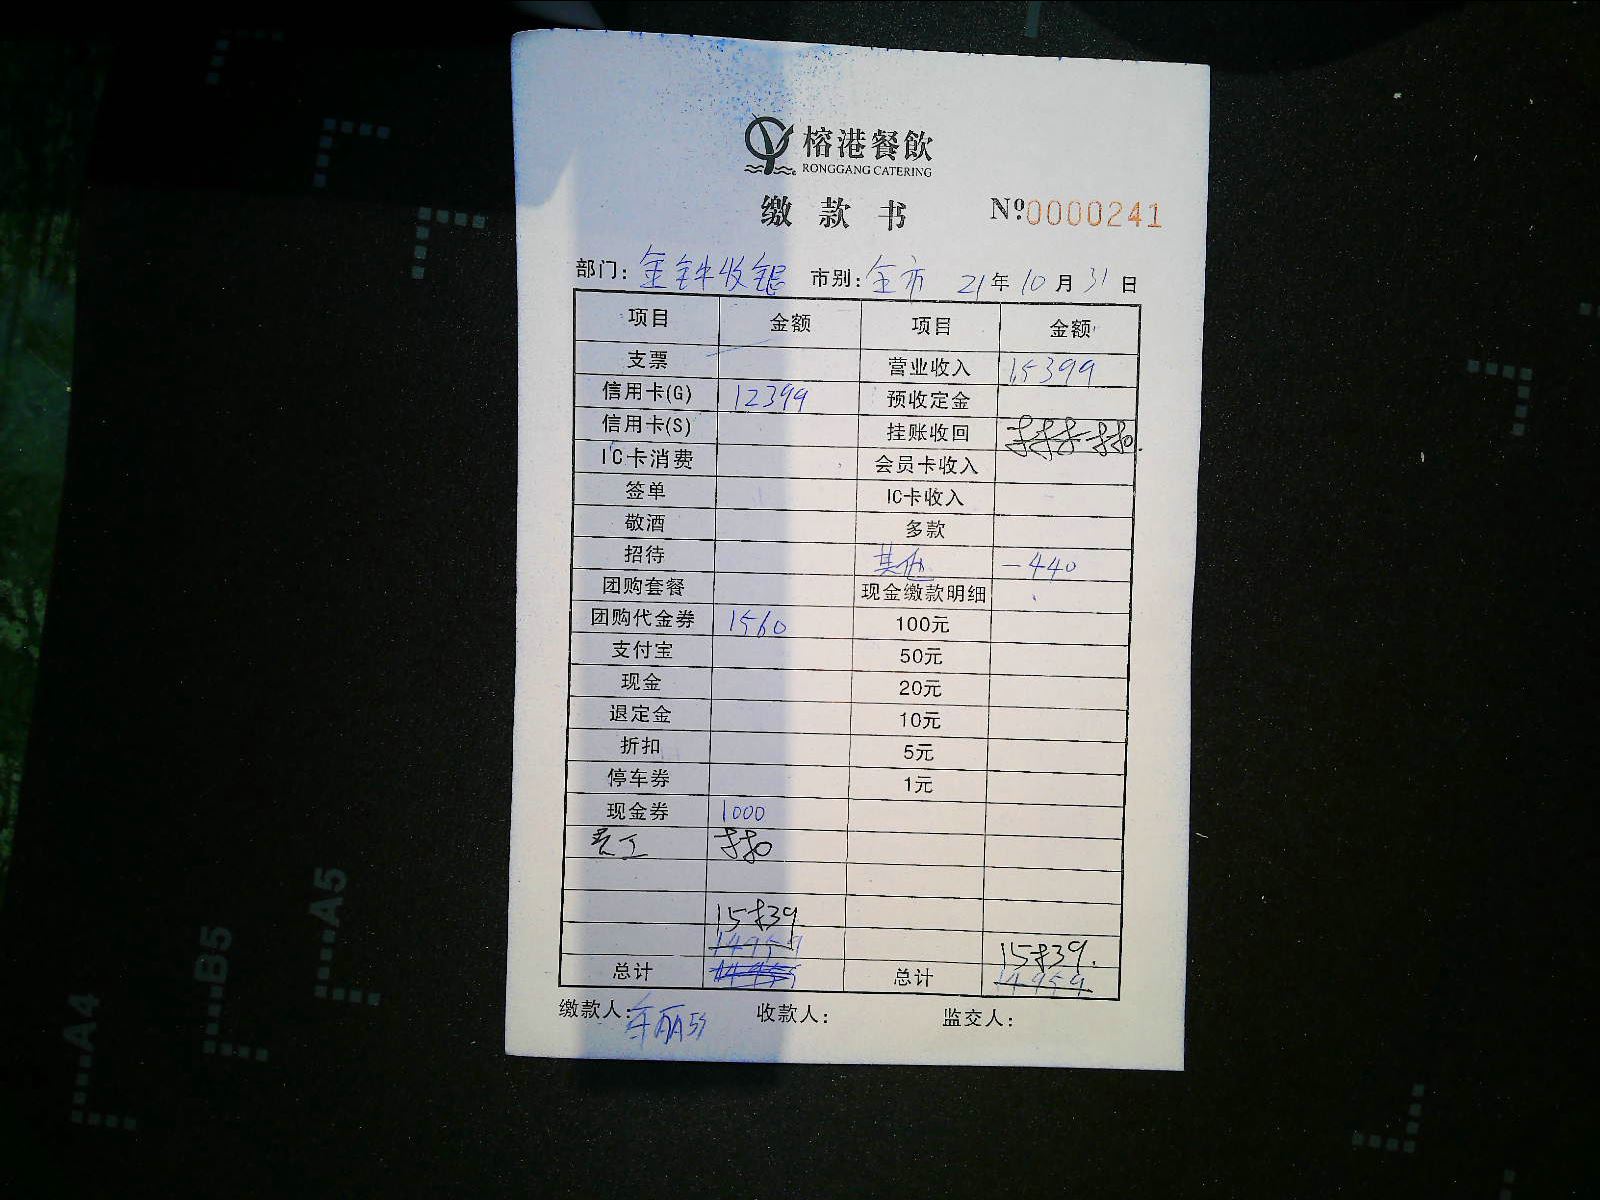 榕港餐飲
RONGGANG CATERING
缴款书 №0000241
部门: 金牛收银 市别: 全市 21年10月31日
项目 金额 项目 金额
支票 营业收入 15399
信用卡(G) 12399 预收定金
信用卡(S) 挂账收回
IC卡消费 会员卡收入
签单 IC卡收入
敬酒 多款
招待 其他 -440
团购套餐 现金缴款明细
团购代金券 1560 100元
支付宝 50元
现金 20元
退定金 10元
折扣 5元
停车券 1元
现金券 1000
员工
14959 
总计 总计 14959
缴款人: 收款人: 监交人:
A4
B5
A5